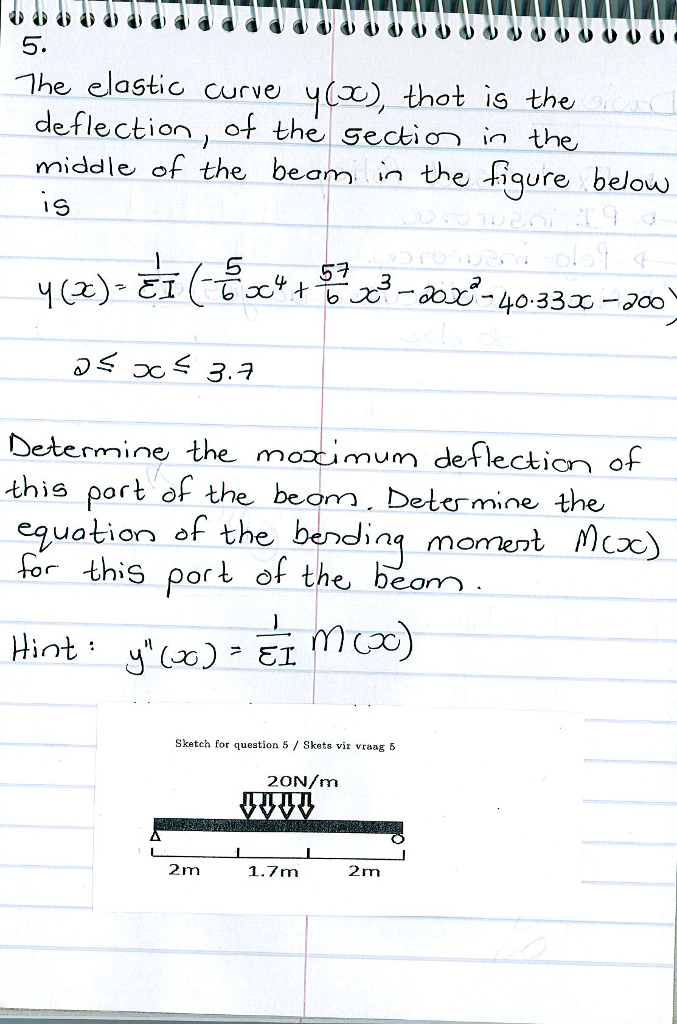 5.
The elastic curve y(x), that is the
deflection, of the section in the
middle of the beam in the figure below
is
y(x) = 1/EI (-5/6 x⁴ + 57/6 x³ - 20x² - 40.33x - 200)
2 ≤ x ≤ 3.7
Determine the maximum deflection of
this part of the beam. Determine the
equation of the bending moment M(x)
for this part of the beam.
Hint: y"(x) = 1/EI M(x)
Sketch for question 5 / Skets vir vraag 5
20N/m
2m 1.7m 2m